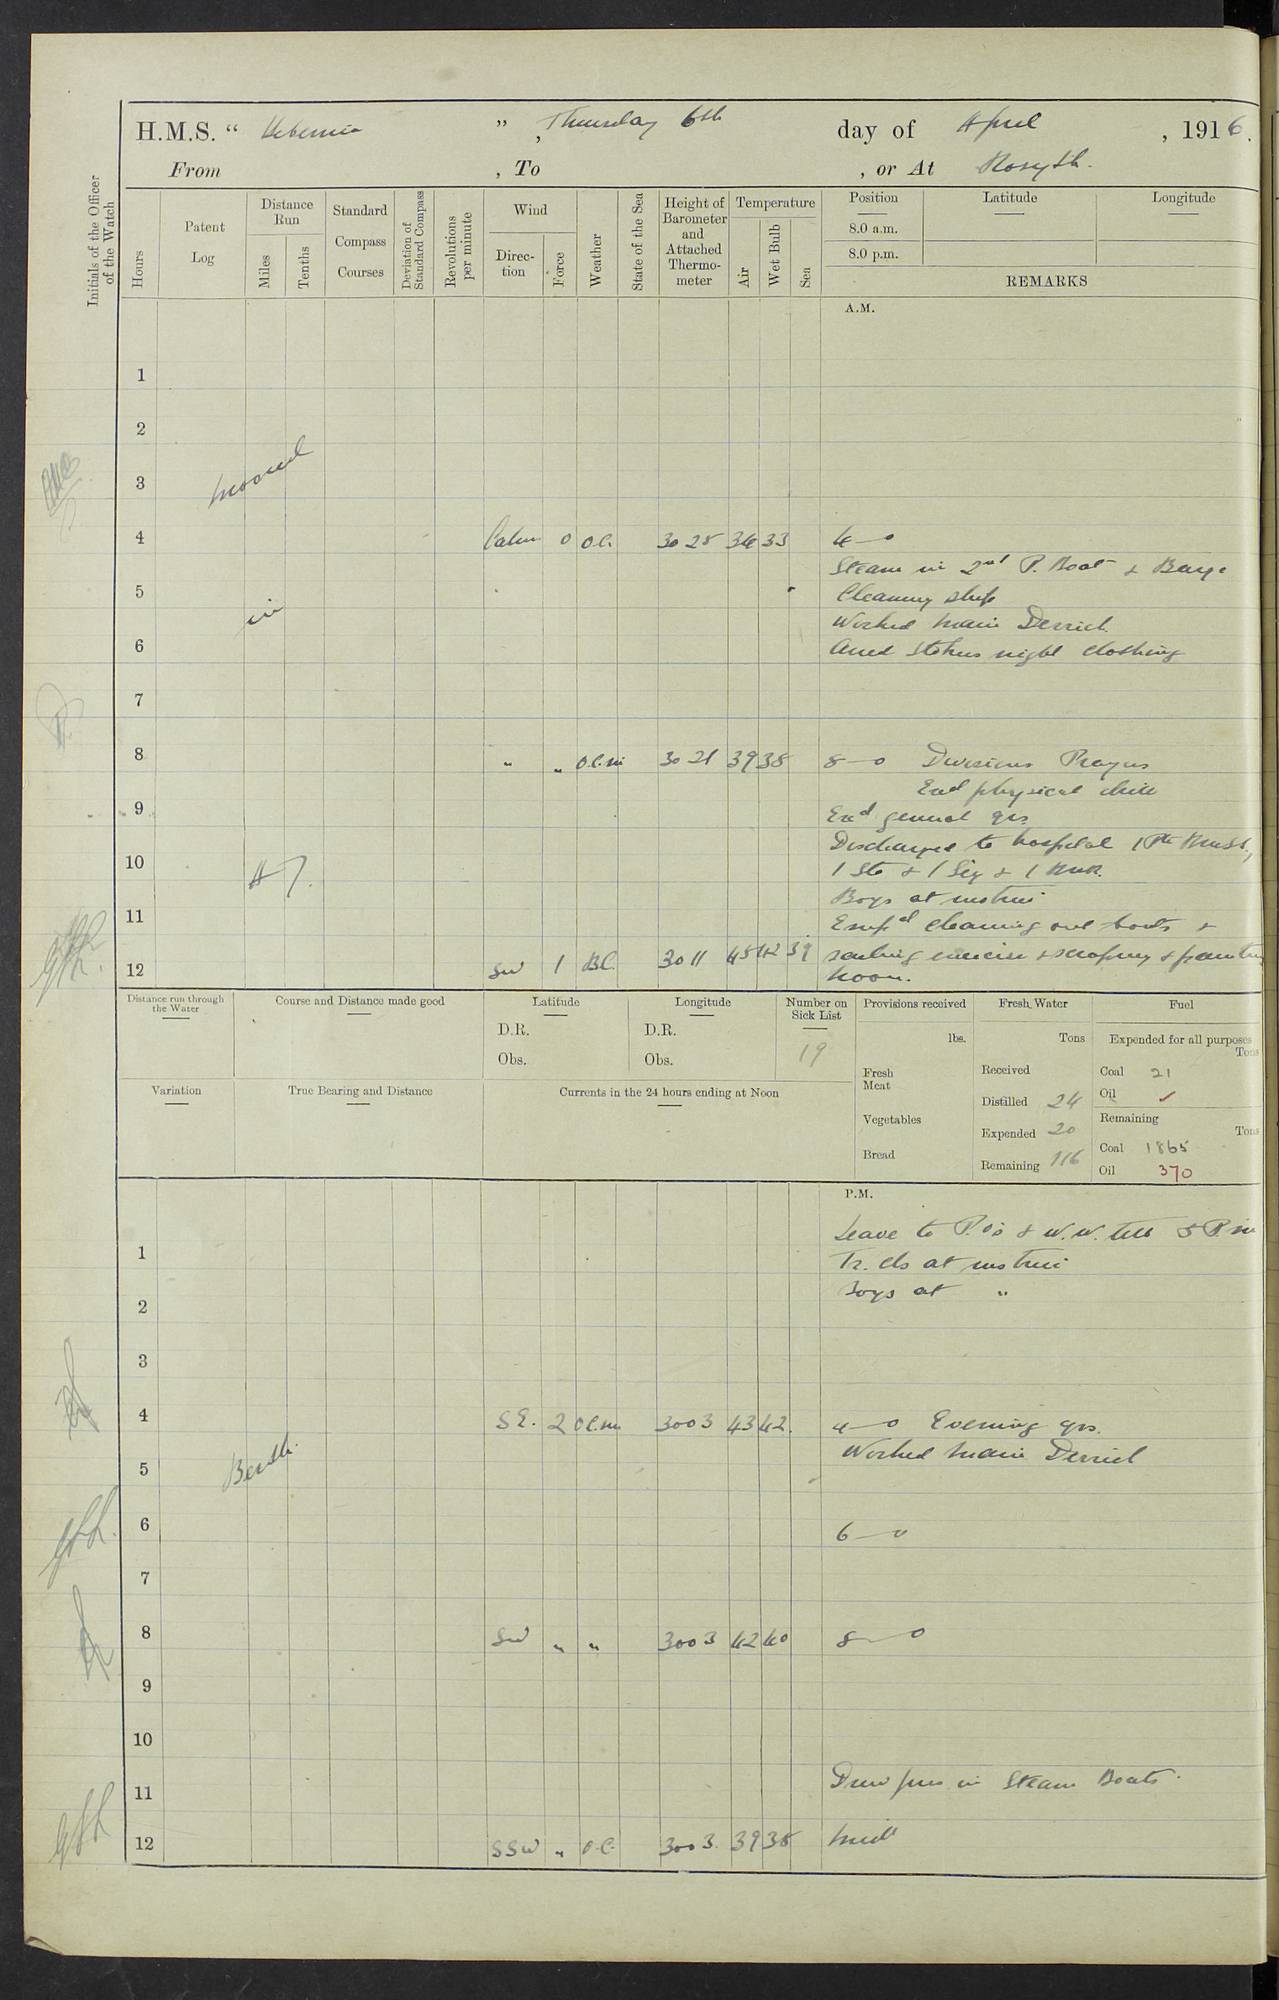 H.M.S. " Hibernia " , Thursday 6th day of April , 1916.
From , To , or At Rosyth.
Initials of the Officer of the Watch
Hours
Patent Log
Distance Run
Miles
Tenths
Standard Compass Courses
Deviation of Standard Compass
Revolutions per minute
Wind
Direction
Force
Weather
State of the Sea
Height of Barometer and Attached Thermometer
Temperature
Air
Wet Bulb
Sea
Position Latitude Longitude
8.0 a.m.
8.0 p.m.
REMARKS
A.M.
1
2
3 moored
4 Calm 0 O.C. 30 25 34 33 4—0
Steam in 2nd P. Boat & Barge
5 Cleaning ship
in Worked Main Derrick
6 Aired Stokers night clothing
7
8 " " O.C.m 30 21 39 38 8—0 Divisions Prayers
Exd physical drill
9 Exd general qrs
Discharged to hospital 1 Pte
10 A 7. 1 Sto & 1 Sig &
Boys at instrn
11 Empd cleaning out boats &
12 SW 1 B.C. 30 11 45 42 39 exercise & scraping & painting
Noon.
Distance run through the Water
Course and Distance made good
Latitude
D.R.
Obs.
Longitude
D.R.
Obs.
Number on Sick List
19
Provisions received
lbs.
Fresh Meat
Vegetables
Bread
Fresh Water
Tons
Received
Distilled 24
Expended 20
Remaining 116
Fuel
Expended for all purposes
Tons
Coal 21
Oil ✓
Remaining
Tons
Coal 1865
Oil 370
Variation
True Bearing and Distance
Currents in the 24 hours ending at Noon
P.M.
Leave to P.O's & W.W. till 5 P.m
1 Tr. cls at instrn
2 Boys at "
3
4 S E. 2 O.C.m 30 03 43 42. 4—0 Evening qrs.
Worked Main Derrick
5 Berth.
6 6—0
7
8 SW " " 30 03 42 40 8—0
9
10
11 Drew fires in Steam Boats.
12 SSW " O.C. 30 03. 39 38 Midt